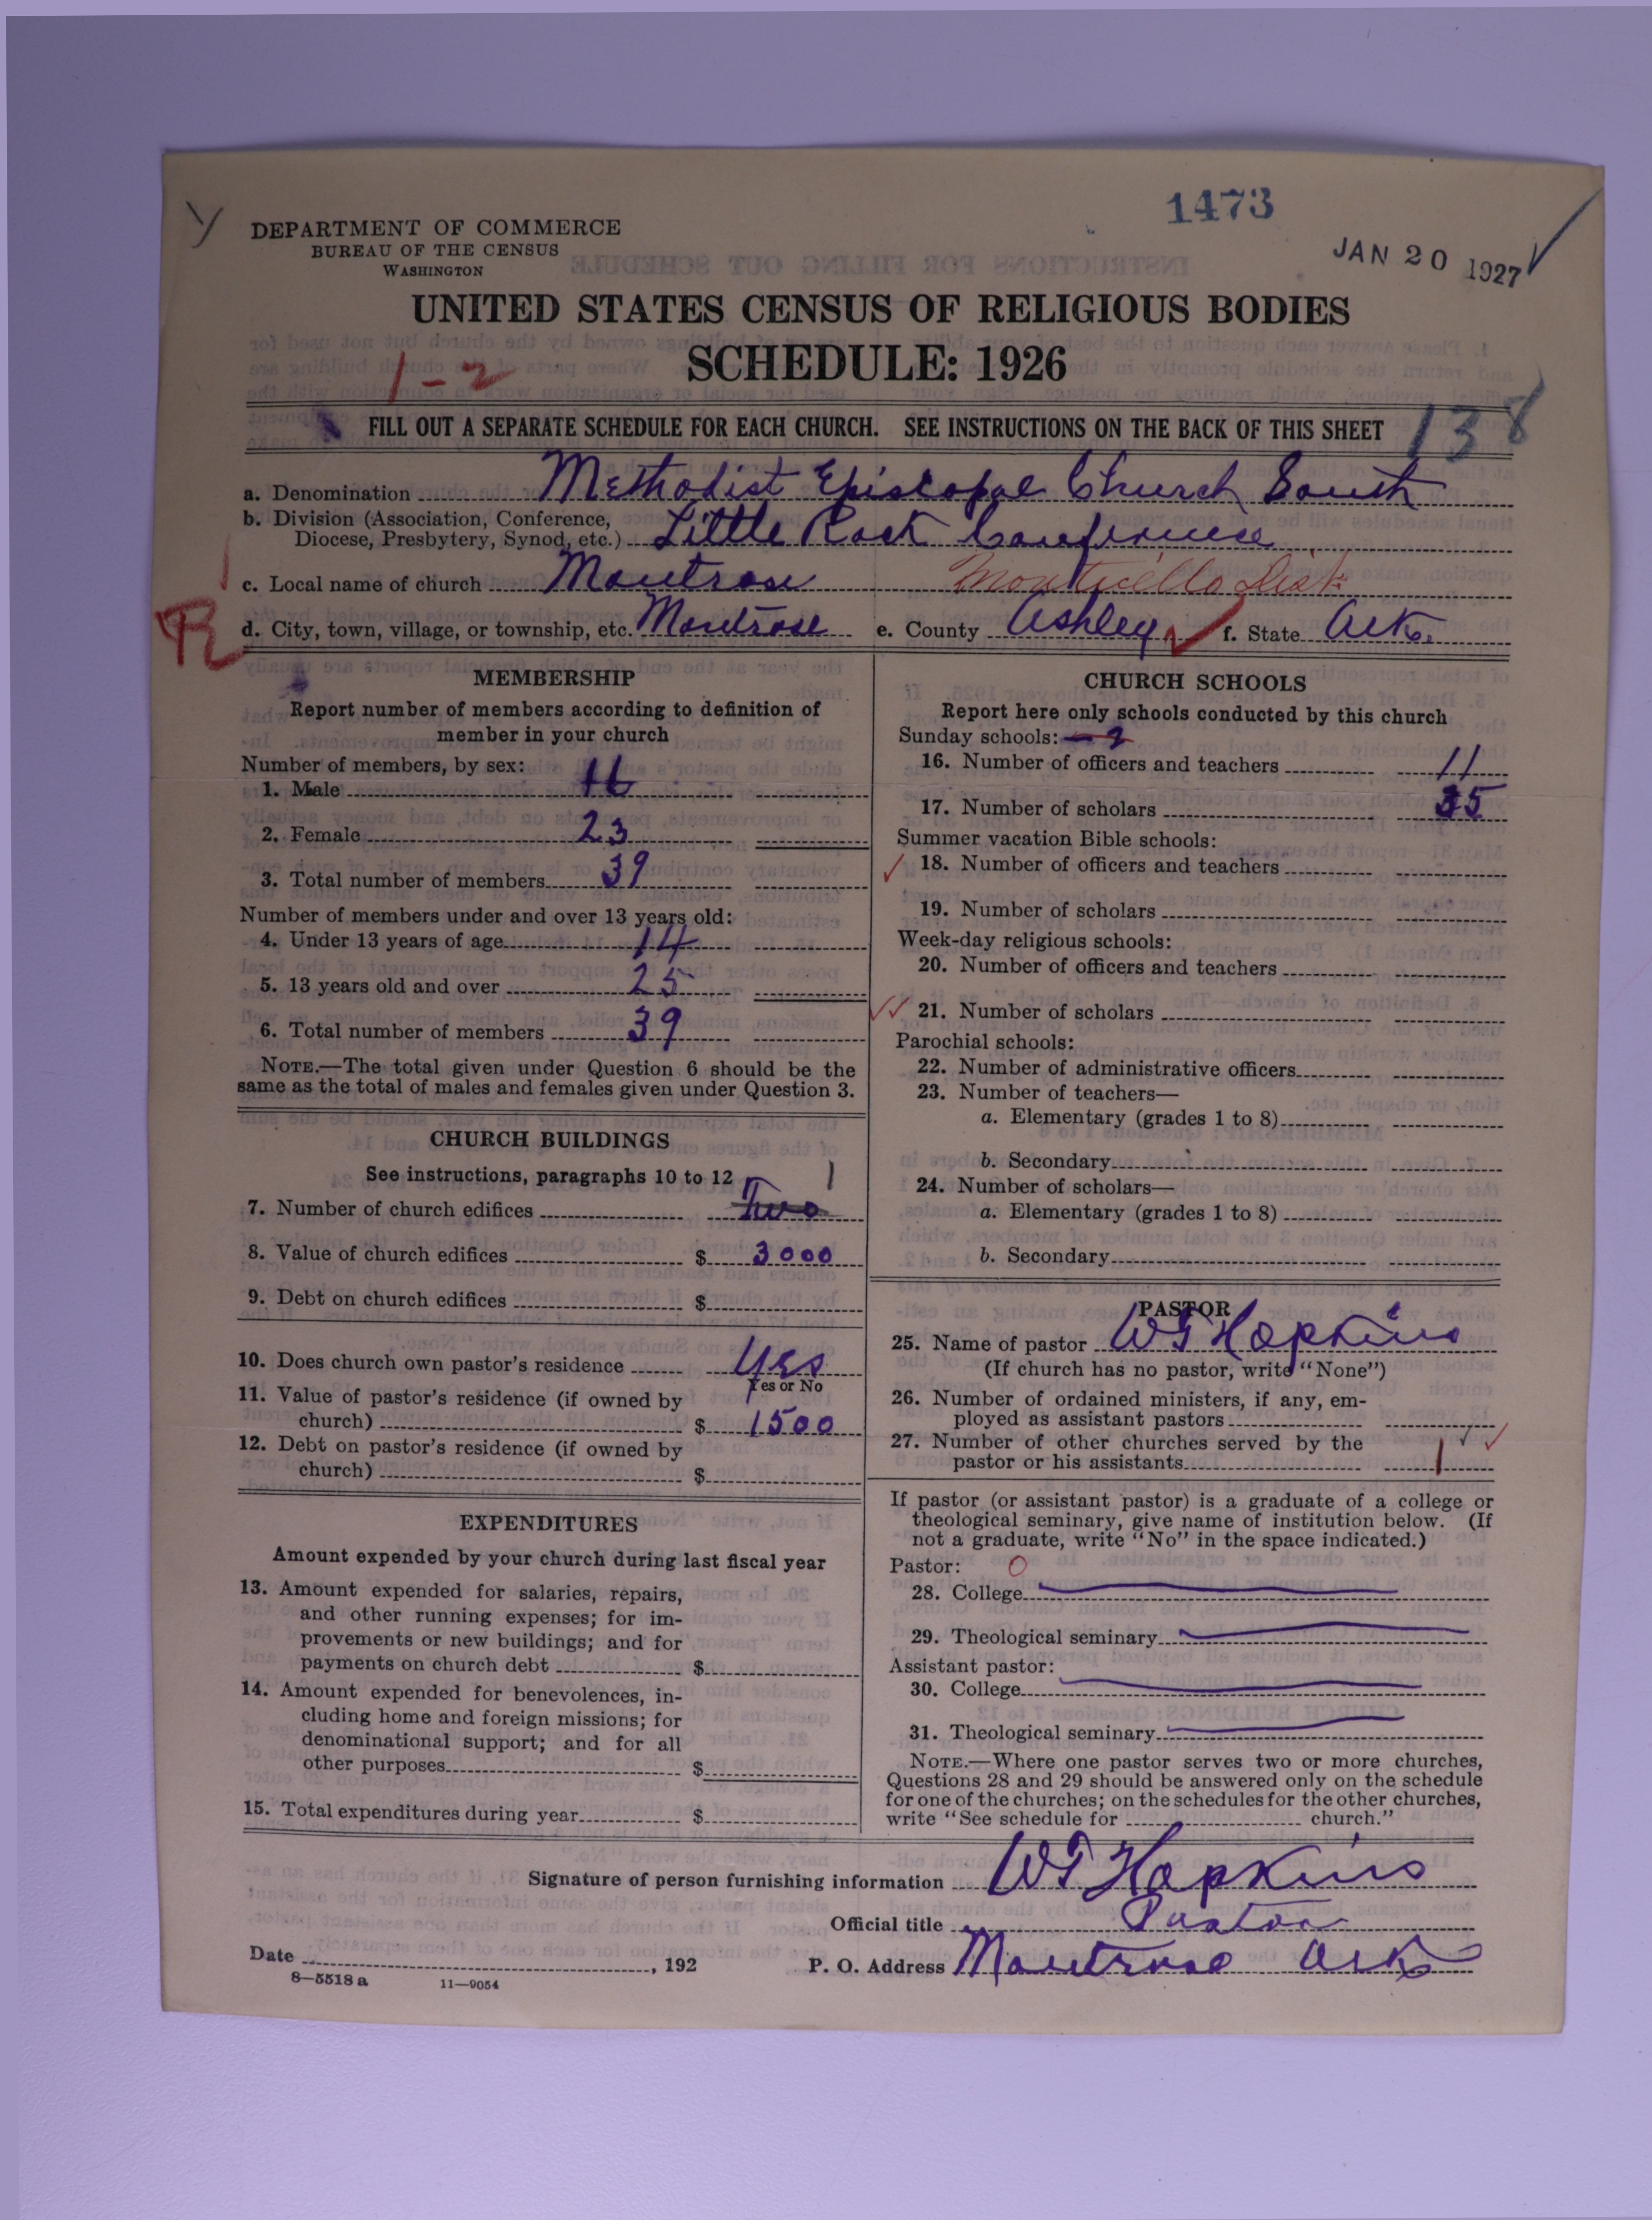 1473
JAN 20 1927
DEPARTMENT OF COMMERCE
BUREAU OF THE CENSUS
WASHINGTON
UNITED STATES CENSUS OF RELIGIOUS BODIES
SCHEDULE: 1926
1-2
FILL OUT A SEPARATE SCHEDULE FOR EACH CHURCH. SEE INSTRUCTIONS ON THE BACK OF THIS SHEET
138
a. Denomination Methodist Episcopal Church South
b. Division (Association, Conference,
Diocese, Presbytery, Synod, etc.) Little Rock Conference
c. Local name of church Montrose Monticello Dist.
d. City, town, village, or township, etc. Montrose e. County Ashley f. State Ark.
MEMBERSHIP
Report number of members according to definition of
member in your church
Number of members, by sex:
1. Male 16
2. Female 23
3. Total number of members 39
Number of members under and over 13 years old:
4. Under 13 years of age 14
5. 13 years old and over 25
6. Total number of members 39
NOTE.—The total given under Question 6 should be the
same as the total of males and females given under Question 3.
CHURCH BUILDINGS
See instructions, paragraphs 10 to 12
1
7. Number of church edifices Two
8. Value of church edifices $ 3000
9. Debt on church edifices $
10. Does church own pastor's residence Yes
Yes or No
11. Value of pastor's residence (if owned by
church) $ 1500
12. Debt on pastor's residence (if owned by
church) $
EXPENDITURES
Amount expended by your church during last fiscal year
13. Amount expended for salaries, repairs,
and other running expenses; for im-
provements or new buildings; and for
payments on church debt $
14. Amount expended for benevolences, in-
cluding home and foreign missions; for
denominational support; and for all
other purposes $
15. Total expenditures during year $
CHURCH SCHOOLS
Report here only schools conducted by this church
Sunday schools:
16. Number of officers and teachers 11
17. Number of scholars 35
Summer vacation Bible schools:
18. Number of officers and teachers
19. Number of scholars
Week-day religious schools:
20. Number of officers and teachers
21. Number of scholars
Parochial schools:
22. Number of administrative officers
23. Number of teachers—
a. Elementary (grades 1 to 8)
b. Secondary
24. Number of scholars—
a. Elementary (grades 1 to 8)
b. Secondary
PASTOR
25. Name of pastor WT Hopkins
(If church has no pastor, write "None")
26. Number of ordained ministers, if any, em-
ployed as assistant pastors
27. Number of other churches served by the
pastor or his assistants 1
If pastor (or assistant pastor) is a graduate of a college or
theological seminary, give name of institution below. (If
not a graduate, write "No" in the space indicated.)
Pastor: 0
28. College
29. Theological seminary
Assistant pastor:
30. College
31. Theological seminary
NOTE.—Where one pastor serves two or more churches,
Questions 28 and 29 should be answered only on the schedule
for one of the churches; on the schedules for the other churches,
write "See schedule for church."
Signature of person furnishing information WT Hopkins
Official title Pastor
Date , 192 P. O. Address Montrose Ark
8—5518 a 11—9054